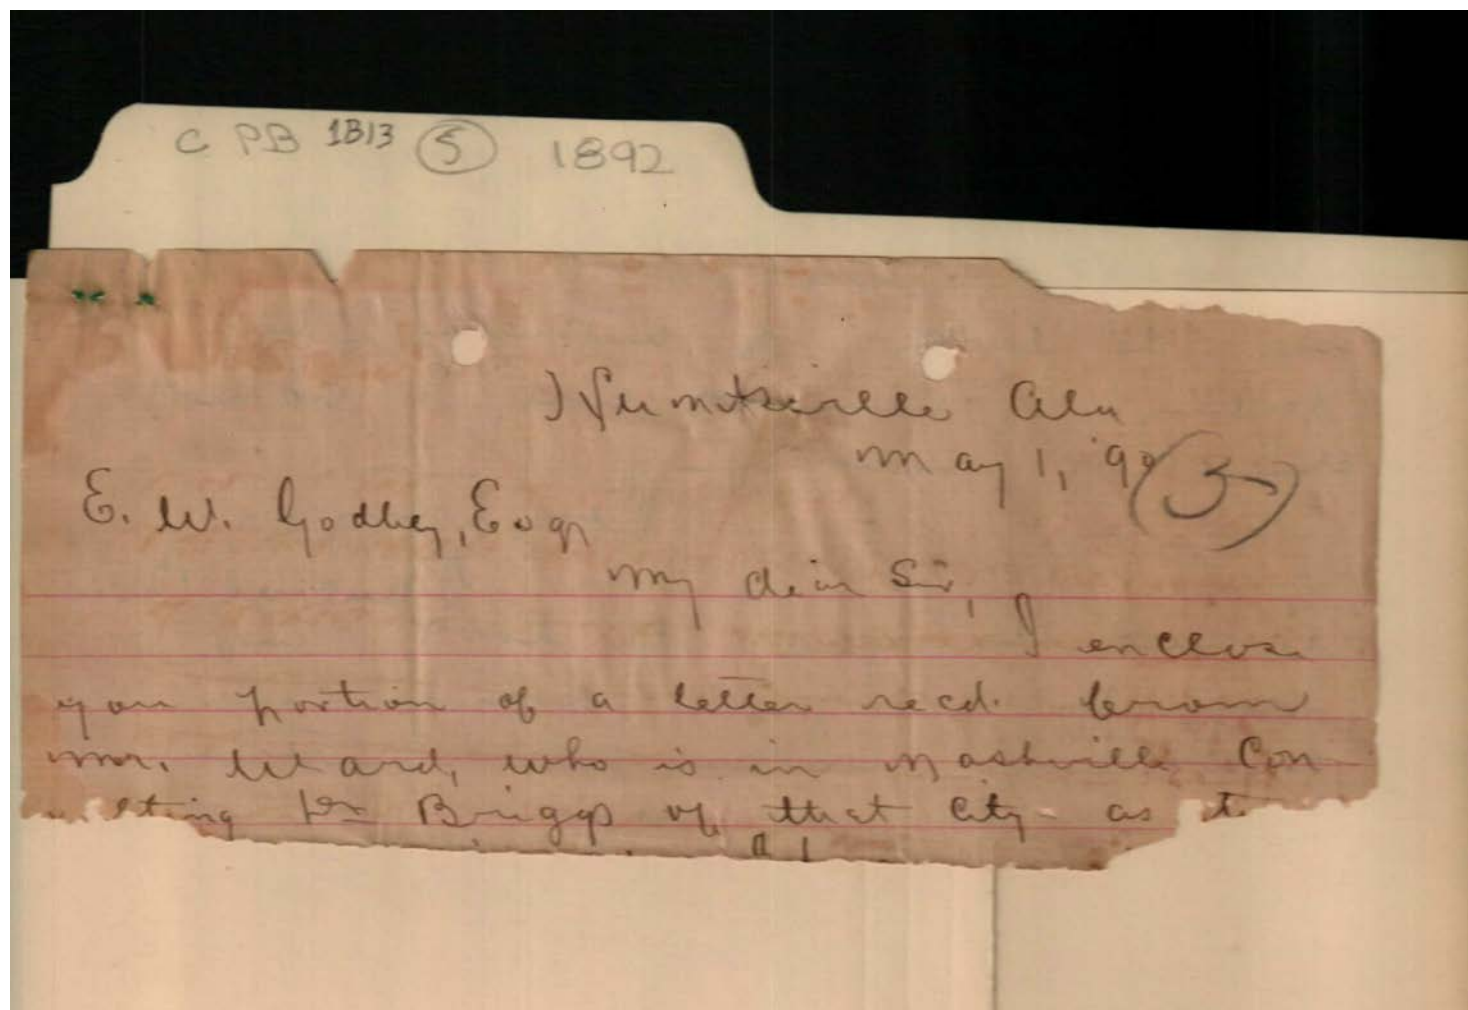 C PB 1B13 5 1892
Huntsville Ala
May 1, '9
3
E. W. Godbey, Esqr
My dear Sir,
I enclose
you portion of a letter recd. from
Mr. Ward, who is in Nashville Con
ulting Dr Briggs of that City as t